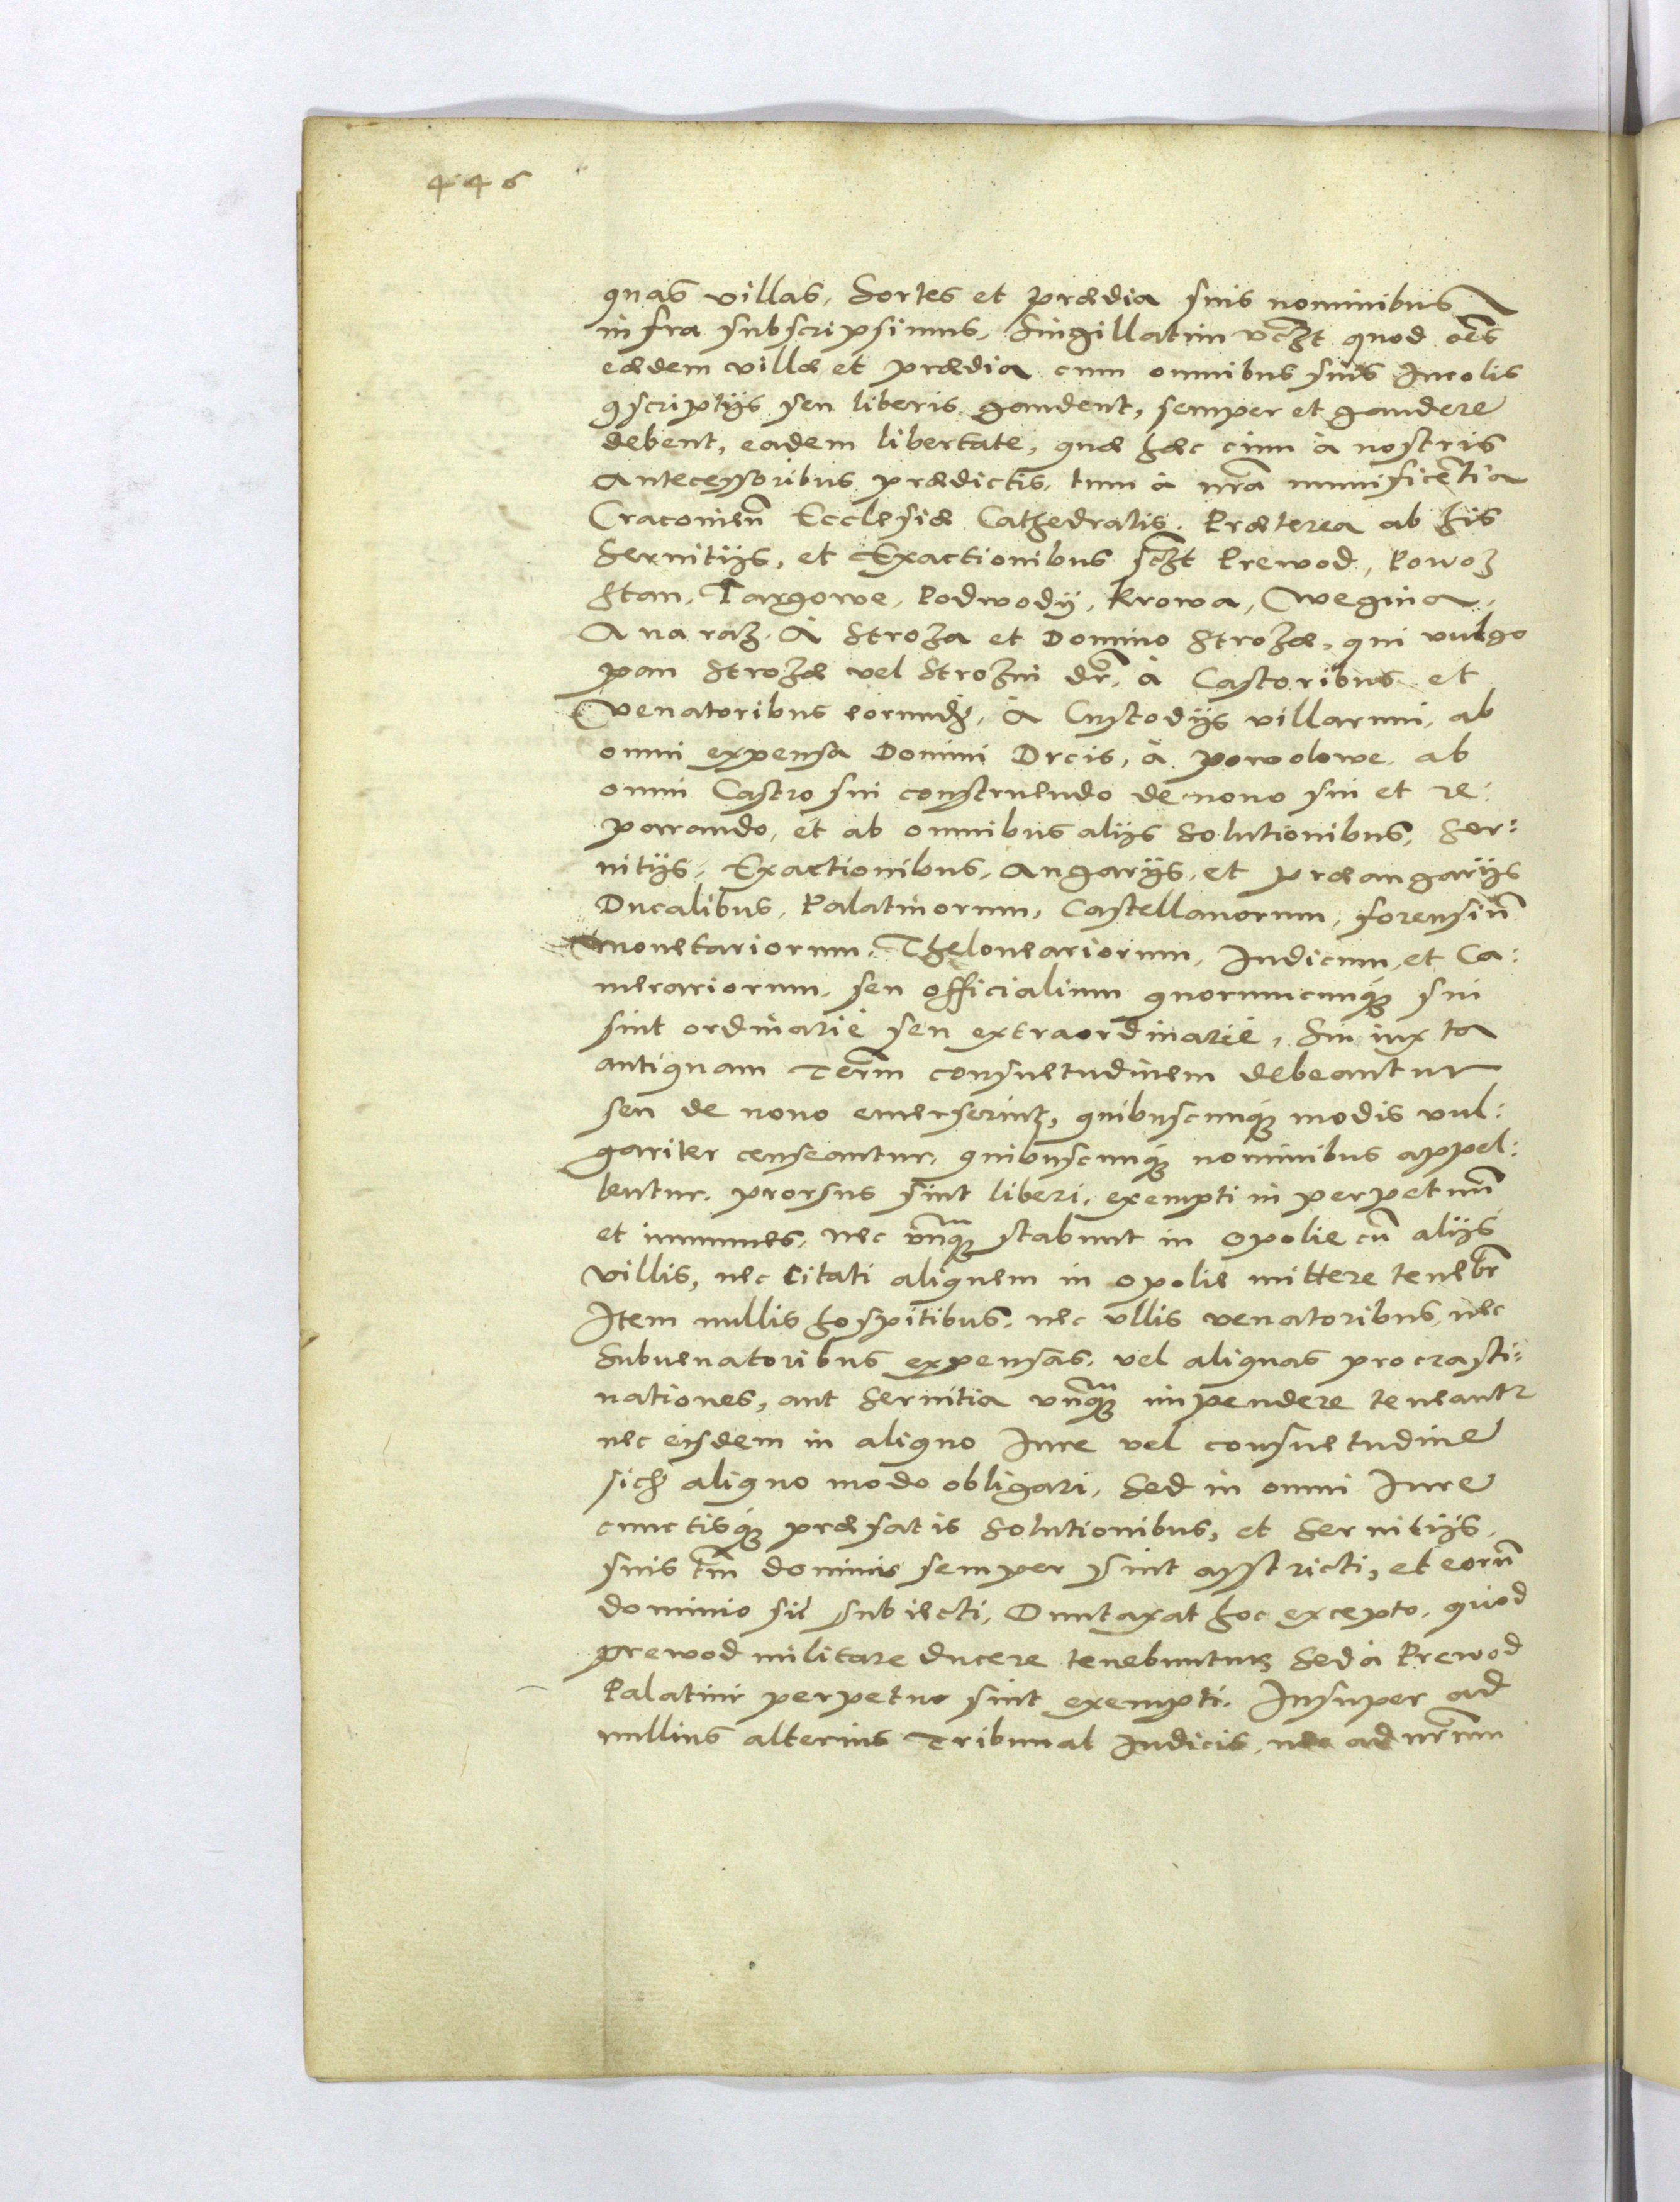 446
quas villas, Sortes et prædia suis nominibus
infra subscripsimus. Singillatim vcꝫt quod oēs
eædem villæ et prædia cum omnibus suis Incolis
ꝯscriptijs seu liberis gaudent, semper et gaudere
debent, eadem libertate, quæ hæc cum à nostris
Antecessoribus prædictis, tum à nrā munificētia
Cracouieñ Ecclesiæ Cathedralis. Præterea ab his
Seruitijs, et Exactionibus scꝫt Prewod, Powoz
Stan, Targowe, Podwody, Krowa, Wegina,
A naraz. A Stroza et Domino Strozæ, qui vulgo
pan Strozæ vel Strozni dr̄, à Castoribus et
Venatoribus eorundꝫ, A Custodijs villarum, ab
omni expensa Domini Drcis, à powolowe, ab
omni Castro sui construendo de nouo siu et re:
parando, et ab omnibus alijs Solutionibus, Ser:
uitijs, Exactionibus, Angarijs, et præangarijs
Ducalibus, Palatinorum, Castellanorum, forensiū
Monetariorum, Theloneariorum, Iudicum, et Ca:
merariorum, seu officialium quorumcunqꝫ siu
sint ordinariè seu extraordinariè, Siu iuxta
antiquam Terrm̄ consuetudinem debeantur
seu de nouo emerserint, quibuscunqꝫ modis vul:
gariter censeantur, quibuscunqꝫ nominibus appel:
lentur, prorsus sint liberi, exempti in perpetuū
et immunes, nec vnqꝫ stabunt in opolie cū alijs
villis, nec Citati aliquem in opolie mittere tenebr̄
Item nullis hospitibus, nec vllis venatoribus, nec
Subuenatoribus expensas, vel aliquas procrasti:
nationes, aut Seruitia vnqꝫ impendere teneantr
nec eisdem in aliquo Iure vel consuetudine
sich aliquo modo obligari, Sed in omni Iure
cunctisqꝫ præfatis Solutionibus, et Seruitijs,
suis tm̄ dominis semper sint asstricti, et eorū
dominio sit subiecti, Duntaxat hoc excepto, quod
prewod militare ducere tenebuntur, Sed à Prewod
Palatini perpetuo sint exempti. Insuper ad
nullius alterius Tribunal Iudicis, nec ad nr̄um